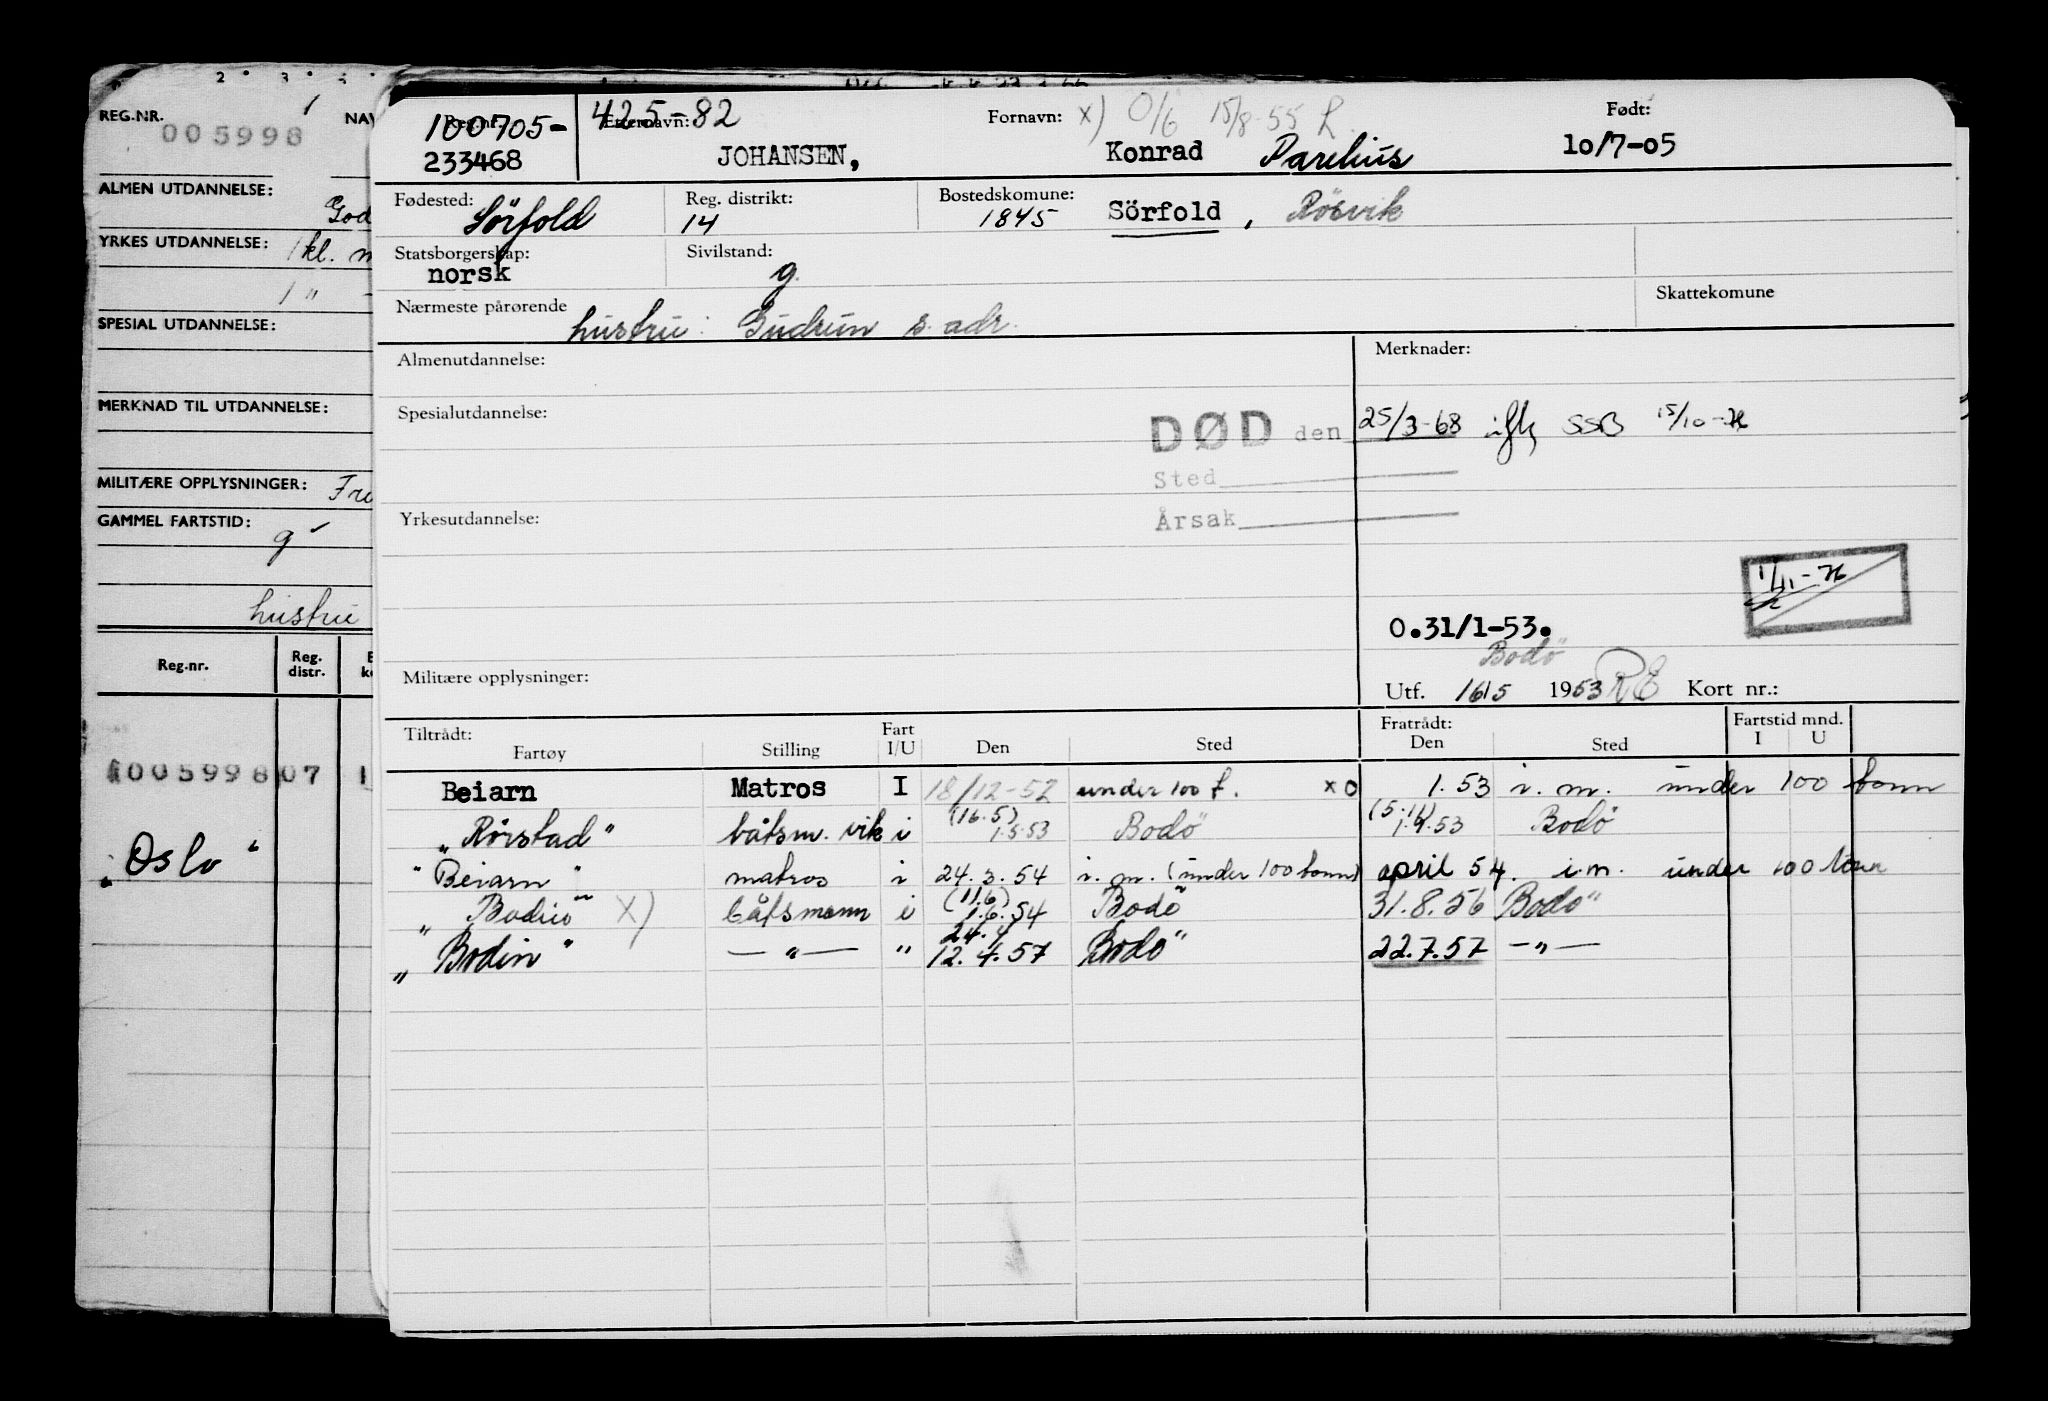 REG.NR. 005998 NAV
ALMEN UTDANNELSE: God
YRKES UTDANNELSE: 1 kl. m
1 "
SPESIAL UTDANNELSE:
MERKNAD TIL UTDANNELSE:
MILITÆRE OPPLYSNINGER: Fri
GAMMEL FARTSTID: g
hustru
Reg.nr. Reg. distr.
00599807 1
"Oslo"
Reg.nr. 100705- Etternavn: 425-82 Fornavn: x) 0/6 15/8-55 Født:
233468 JOHANSEN, Konrad Parelius 10/7-05
Fødested: Sörfold Reg. distrikt: 14 Bostedskomune: 1845 Sörfold, Rösvik
Statsborgerskap: norsk Sivilstand: g.
Nærmeste pårørende hustru: Gudrun s. adr. Skattekomune
Almenutdannelse: Merknader:
Spesialutdannelse:
DØD den 25/3-68 SSB 15/10-
Sted
Yrkesutdannelse: Årsak
0.31/1-53.
Bodö
Militære opplysninger: Utf. 16/5 1953 RE Kort nr.:
Tiltrådt: Fart Fratrådt: Fartstid mnd.
Fartøy Stilling I/U Den Sted Den Sted I U
Beiarn Matros I 18/12-52 under 100 t. x0 1.53 i. m. under 100 tonn
"Rörstad" båtsm. vik i (16.5) 1.5.53 Bodö (5.11) 53 Bodö
"Beiarn" matros i 24.3.54 i. m. (under 100 tonn) april 54. i.m. under 100 tonn
" x) båtsmann i (11.6) 1.6.54 Bodö 31.8.56 Bodö"
"Bodin" — " — " 24.4 12.4.57 Bodö" 22.7.57 — " —